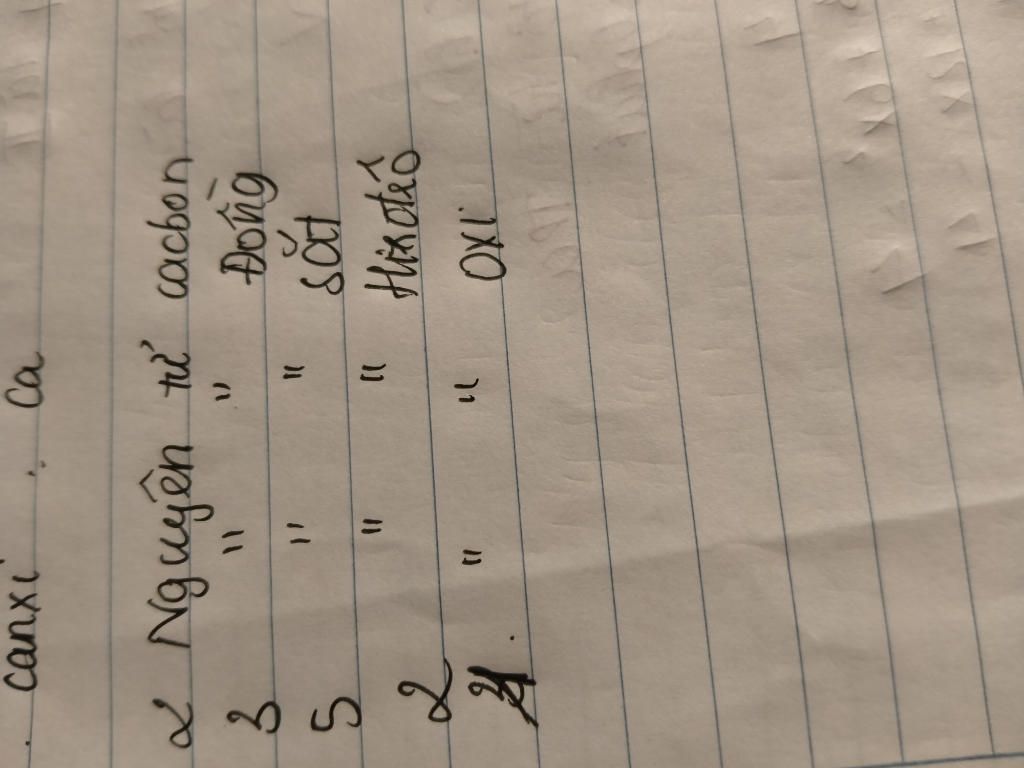 canxi : ca
2 Nguyên tử cacbon
3 " " Đồng
5 " " sắt
2 " " Hiđrô
" " oxi